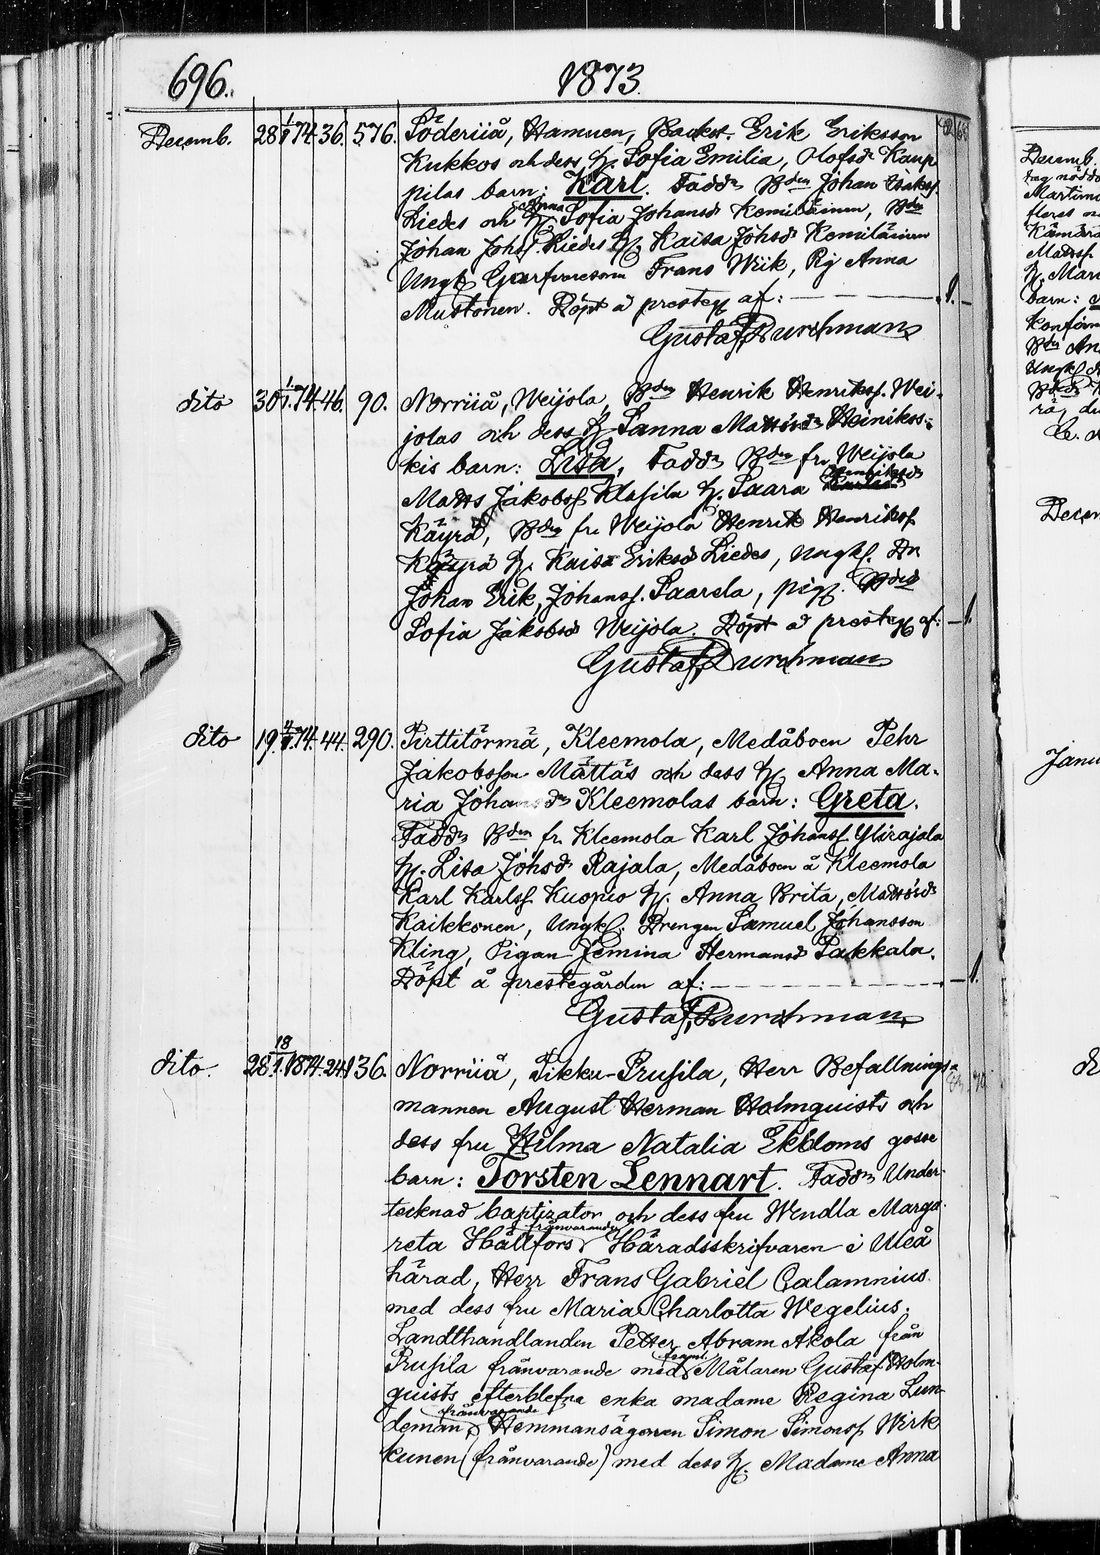 696. 1873.
Decemb. 28 1/1 74. 36. 576. Söderiiå, Hamuen, Backst. Erik Eriksson
Kukkos och dess H. Sofia Emilia, Olofsdr Kaup
pilas barn: Karl. Faddr Bden Johan Isaksf
Liedes och H. Anna Sofia Johansdr Komiläinen, Bdn
Johan Johsf. Liedes H. Kaisa Johsdr Komiläinen
Ungk. Garfvaresonen Frans Wiik, Pig Anna
Mustonen. Döpt å presteg af: 1.
Gustaf Durchman
dito 30 1/1. 74. 46. 90. Norriiå, Weijola, Bden Henrik Henriksf. Wei-
jolas och dess H. Sanna Mattsdr Heiniks-
kis barn: Lisa, Faddr Bden fr. Weijola
Matts Jakobsf Klasila H. Saara Henriksdr
Käyrä, Bden fr. Weijola Henrik Henriksf
Käyrä H. Kaisa Eriksdr Liedes, Ungk. Dr
Johan Erik, Johansf. Saarela, pig. Bdes
Sofia Jakobsdr Weijola. Döpt å presteg af: 1.
Gustaf Durchman
dito 19. 4/1 74. 44. 290. Pirttitörmä, Kleemola, Medåboen Pehr
Jakobsson Mattas och dess H. Anna Ma-
ria Johansdr Kleemolas barn: Greta.
Faddr Bden fr. Kleemola Karl Johansf. Ylirajala
H. Lisa Johsdr Rajala, Medåboen å Kleemola
Karl Karlsf. Kuopio H. Anna Brita, Mattsdr
Kaikkonen, Ungk. Drengen Samuel Johansson
Kling, Pigan Jemina Hermansdr Pakkala.
Döpt å prestegården af: 1.
Gustaf Durchman
dito. 28 18/1. 1874. 24. 136. Norriiå, Pikku-Prusila, Herr Befallnings-
mannen August Herman Holmquists och
dess fru Hilma Natalia Ekboms gosse
barn: Torsten Lennart. Faddr Under-
tecknad baptizator och dess fru Wendla Marga-
reta Hällfors frånvarande Häradsskrifvaren i Uleå
härad, Herr Frans Gabriel Calamnius
med dess fru Maria Charlotta Wegelius.
Landthandlanden Petter Abram Akola från
Prusila frånvarande med Målaren Gustaf Holm-
quists efterblefne enka madame Regina Lun-
deman frånvarande Hemmansägaren Simon Simonsf Wirk
kunen (frånvarande) med dess H. Madame Anna